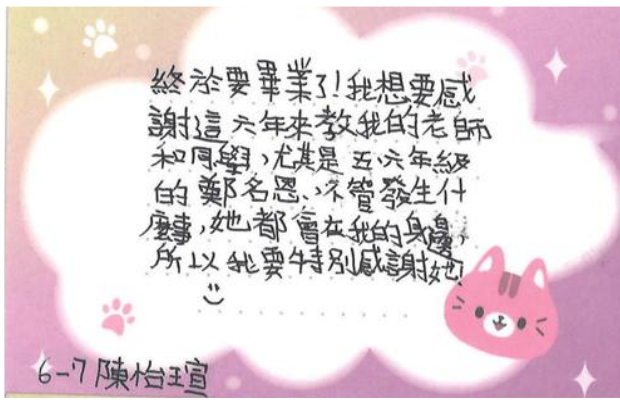 終於要畢業了!我想要感
謝這六年來教我的老師
和同學,尤其是五、六年級
的鄭名恩、不管發生什
麼事,她都會在我的身邊,
所以我要特別感謝她!
6-7 陳怡瑄